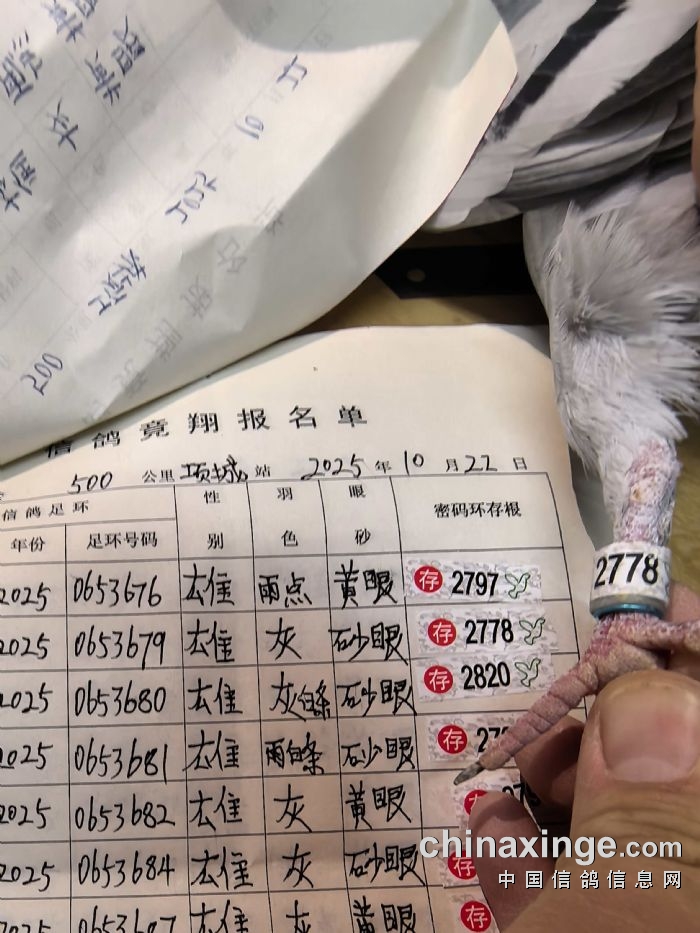 200
项城
2022
10
信鸽竞翔报名单
500 公里 项城 站 2025 年 10 月 22 日
信鸽足环 性别 羽色 眼砂 密码环存根
年份 足环号码
2025 0653676 雄 雨点 黄眼 存 2797
2025 0653679 雄 灰 砂眼 存 2778
2025 0653680 雄 灰白条 砂眼 存 2820
2025 0653681 雄 雨白条 砂眼 存
2025 0653682 雄 灰 黄眼 存
2025 0653684 雄 灰 砂眼 存
2025 雄 灰 黄眼 存
2778
chinaxinge.com
中国信鸽信息网